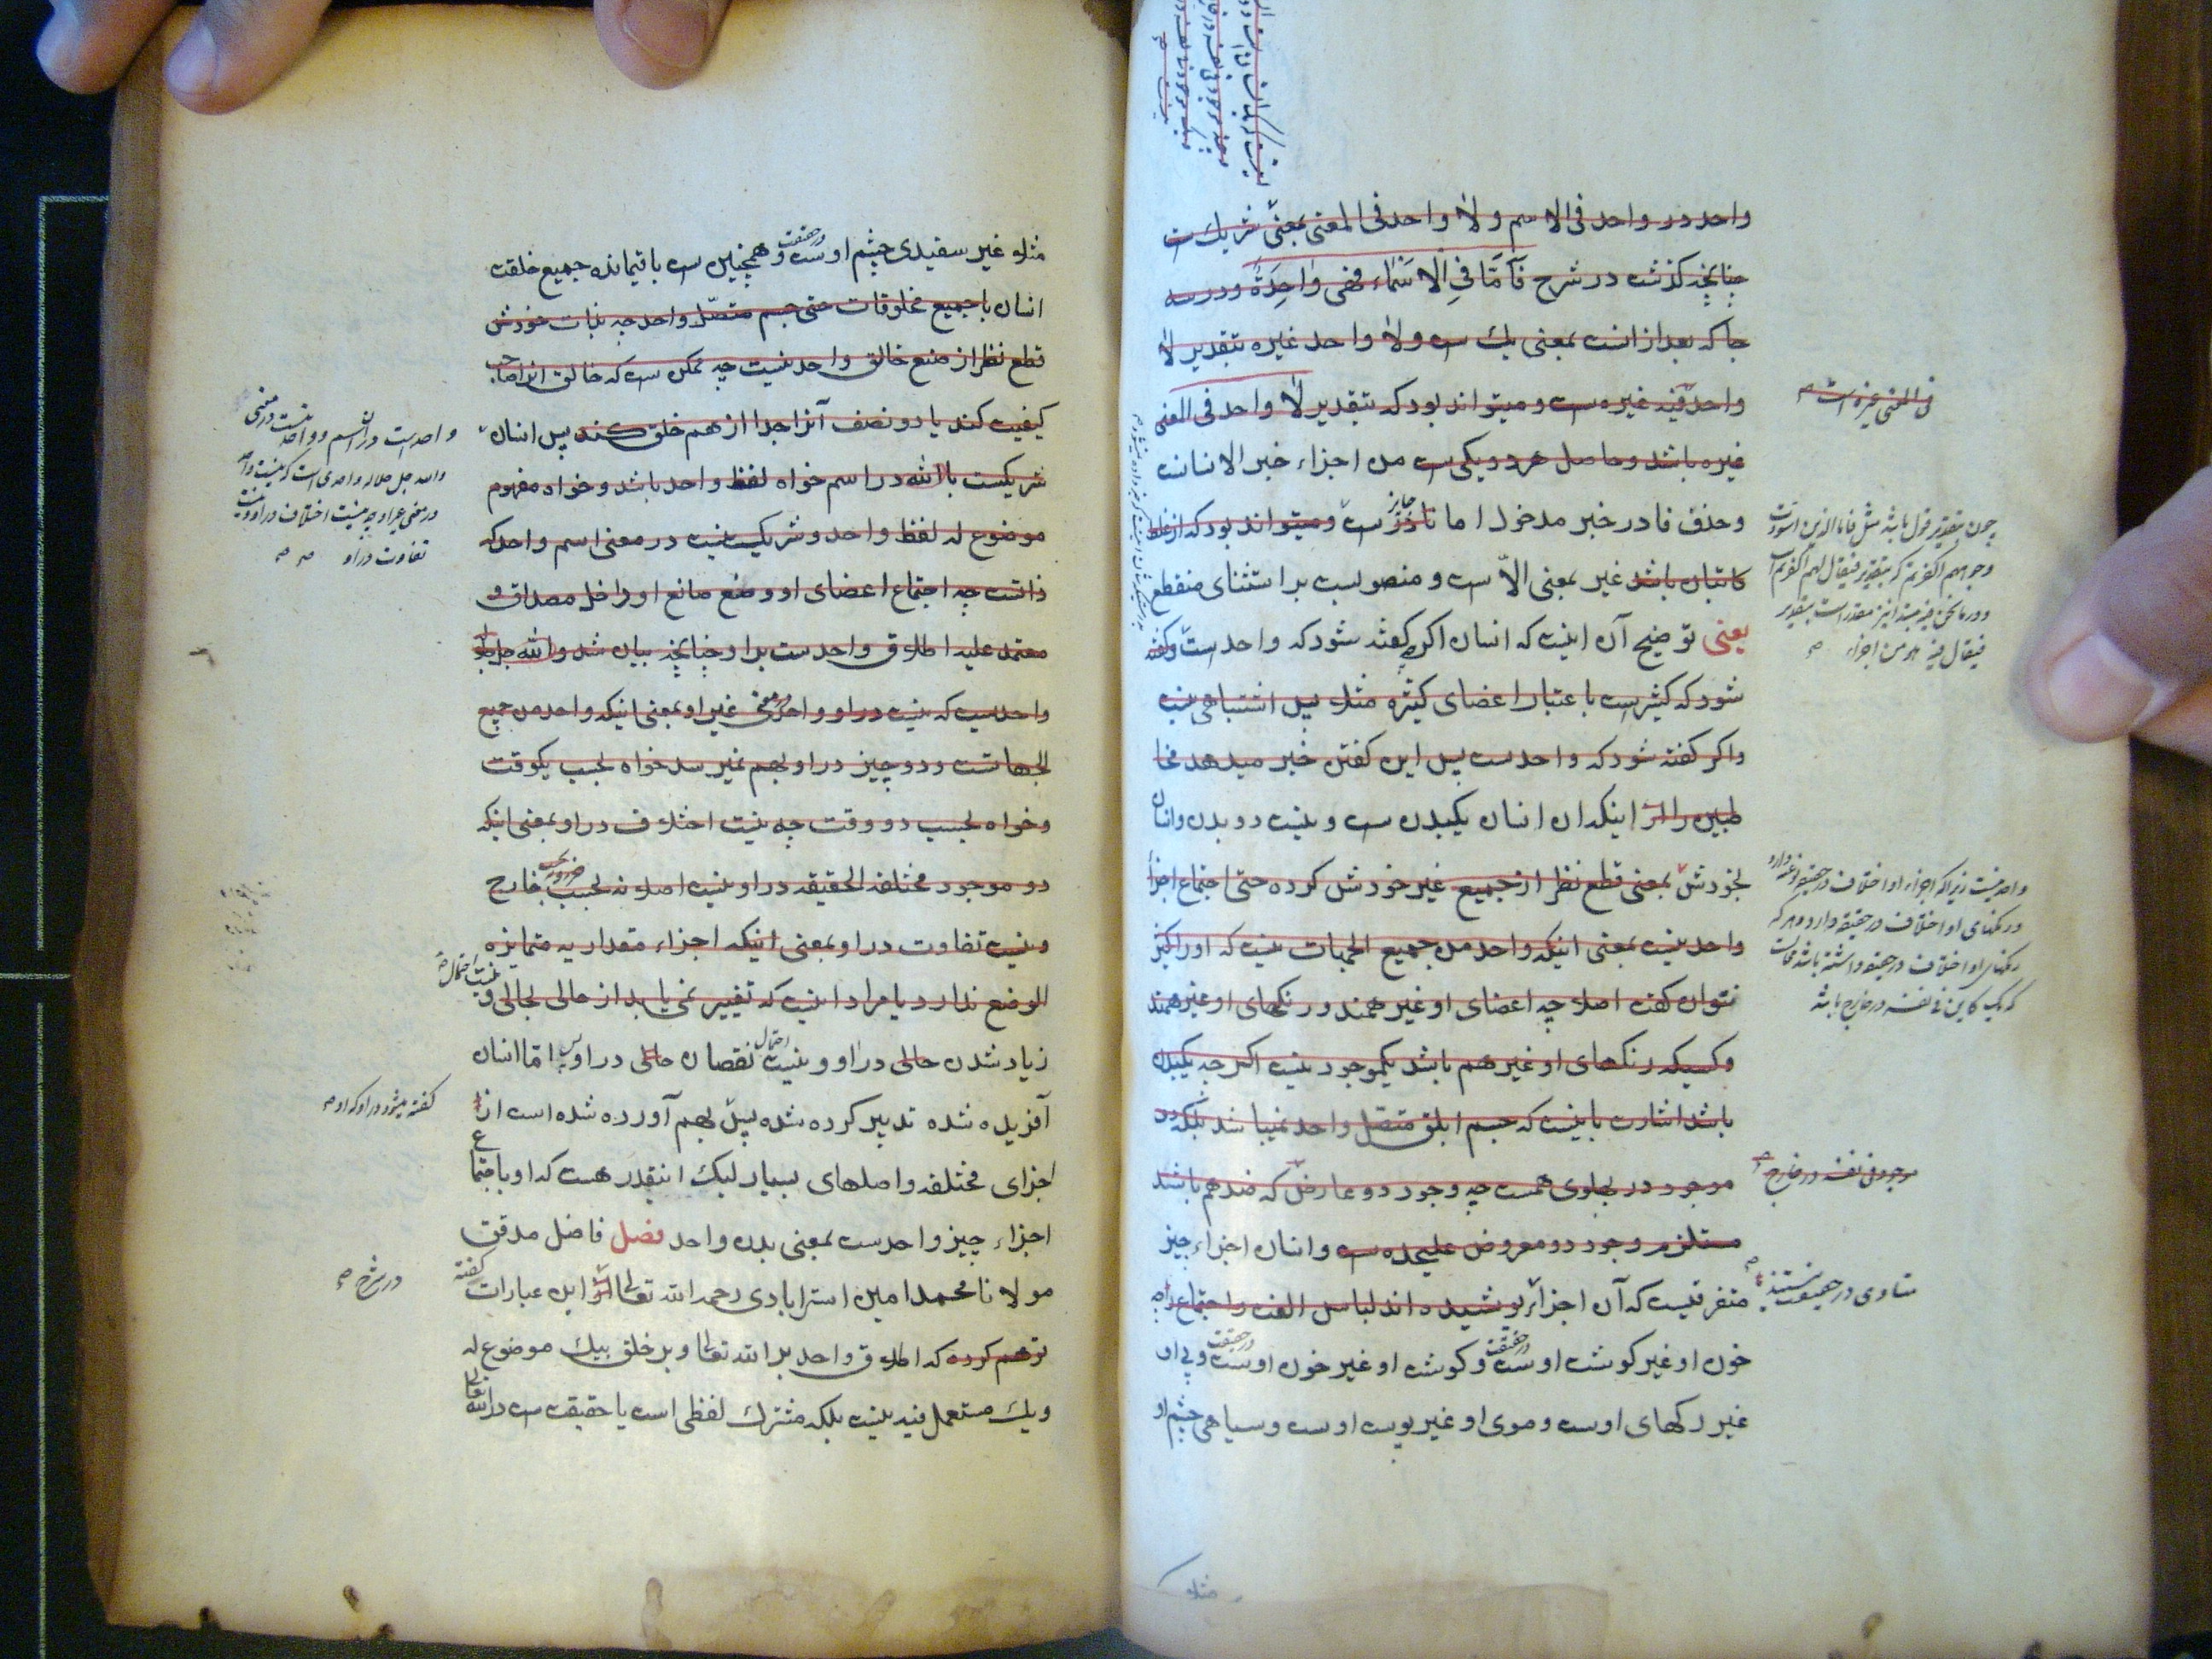 واحد در واحد فی الاسم و لا واحد فی المعنی بمعنی شریک است
چنانچه کذشت در شرح فَاَمَّا فِی الْاَسْمَاء فهی واحِدَةٌ و در سه
جا که بعد از انست بمعنی یک است و لا واحد غیره بتقدیر لا
واحد فیه غیره است و میتواند بود که بتقدیر لا واحد فی المعنی
غیره باشد و حاصل هر دو یکی است من اجزاء خبر الانسانست
و حذف فا در خبر مدخول اما نادر جایز است و میتواند بود که از غلط
کاتبان باشد غیر بمعنی الّا است و منصوبست بر استثنای منقطع
یعنی توضیح آن اینست که انسان اکرچه کفته شود که واحد است و کفته
شود که کثیر است باعتبار اعضای کثیره مثلا پس اشتباهی نیست
و اکر کفته شود که واحد است پس این کفتن خبر میدهد مخا
طبین را از اینکه ان انسان یکبدن است و نیست دو بدن و انسان
بخودش بمعنی قطع نظر از جمیع غیر خودش کرده حتی اجتماع اجزا
واحد نیست بمعنی اینکه واحد من جمیع الجهات نیست که او را کثیر
نتوان کفت اصلا چه اعضای او غیر همند و رنکهای او غیر همند
و کسیکه رنکهای او غیر هم باشد یکموجود نیست اکرچه یکبدن
باشد اشارت باینست که جسم ابلق متصل واحد نمیباشد بلکه دو
موجود در پهلوی همست چه وجود دو عارض که ضد هم باشد
مستلزم وجود دو معروض علیحده است و انسان اجزاء چیز
متفرقیست که آن اجزاء پوشیده اند لباس الفت و اجتماع را چه
خون او غیر کوشت اوست در حقیقت و کوشت او غیر خون اوست در حقیقت و پی او
غیر رکهای اوست و موی او غیر پوست اوست و سیاهی چشم او
فی المعنی غیره است
چون بتقدیر قول باشد مثل فاما الذین اسودت
وجوههم اکفرتم که بتقدیر فیقال لهم اکفرتم است
فیقال فیه هو من اجزاء
واحد نیست زیرا که اجزاء او اختلاف در حقیقه دارد
و رنکهای او اختلاف در حقیقه دارد و هر که
رنکهای او اختلاف در حقیقه داشته باشد محالست
که یک کاین فی نفسه در خارج باشد
موجود فی نفسه در خارج
متساوی در حقیقت نیستند
مثلا
مثلا غیر سفیدی چشم اوست در حقیقت و همچنین است باقیمانده جمیع خلقت
انسان با جمیع مخلوقات حتی جسم متصل واحد چه بذات خودش
قطع نظر از صنع خالق واحد نیست چه ممکن است که خالق انرا صاحب
کیفیت کند یا دو نصف آنرا جدا از هم خلق کند پس انسان
شریکست با اللّه در اسم خواه لفظ واحد باشد و خواه مفهوم
موضوع له لفظ واحد و شریک نیست در معنی اسم واحد که
ذاتست چه اجتماع اعضای او و صنع صانع او داخل مصداق و
معتمد علیه اطلاق واحد است بر او چنانچه بیان شد و اللّه جل جلاله
واحدیست که نیست در او واحد معنی غیر او بمعنی اینکه واحد من جمیع
الجهاتست و دو چیز در او بهم نمیرسد خواه بحسب یکوقت
و خواه بحسب دو وقت چه نیست اختلاف در او بمعنی اینکه
دو موجود مختلفه الحقیقه در او نیست اصلا نه بحسب خارج
و نیست تفاوت در او بمعنی اینکه اجزاء مقداریه متمایزه
الوضع ندارد یا مراد اینست که تغییر نمی یابد از حالی بحالی و نیست احتمال
زیاد شدن حالی در او و نیست احتمال نقصان حالی در او پس اما انسان
آفریده شده تدبیر کرده شده پس بهم آورده شده است از
اجزای مختلفه و اصلهای بسیار لیک اینقدر هست که او باجتماع
اجزاء چیز واحدست بمعنی بدن واحد فصل فاضل مدقق
مولانا محمد امین استرابادی رحمه الله تعالی از این عبارات کفته
توهم کرده که اطلاق واحد بر الله تعالی و بر خلق بیک موضوع له
و یک مستعمل فیه نیست بلکه مشترک لفظی است یا حقیقت است در الله تعالی
واحدست در اسم و واحد نیست در معنی
و الله جل جلاله واحدی است که نیست واحد
در معنی غیر او چه نیست اختلاف در او و نیست
تفاوت در او
کفته میشود در او که او
در شرح